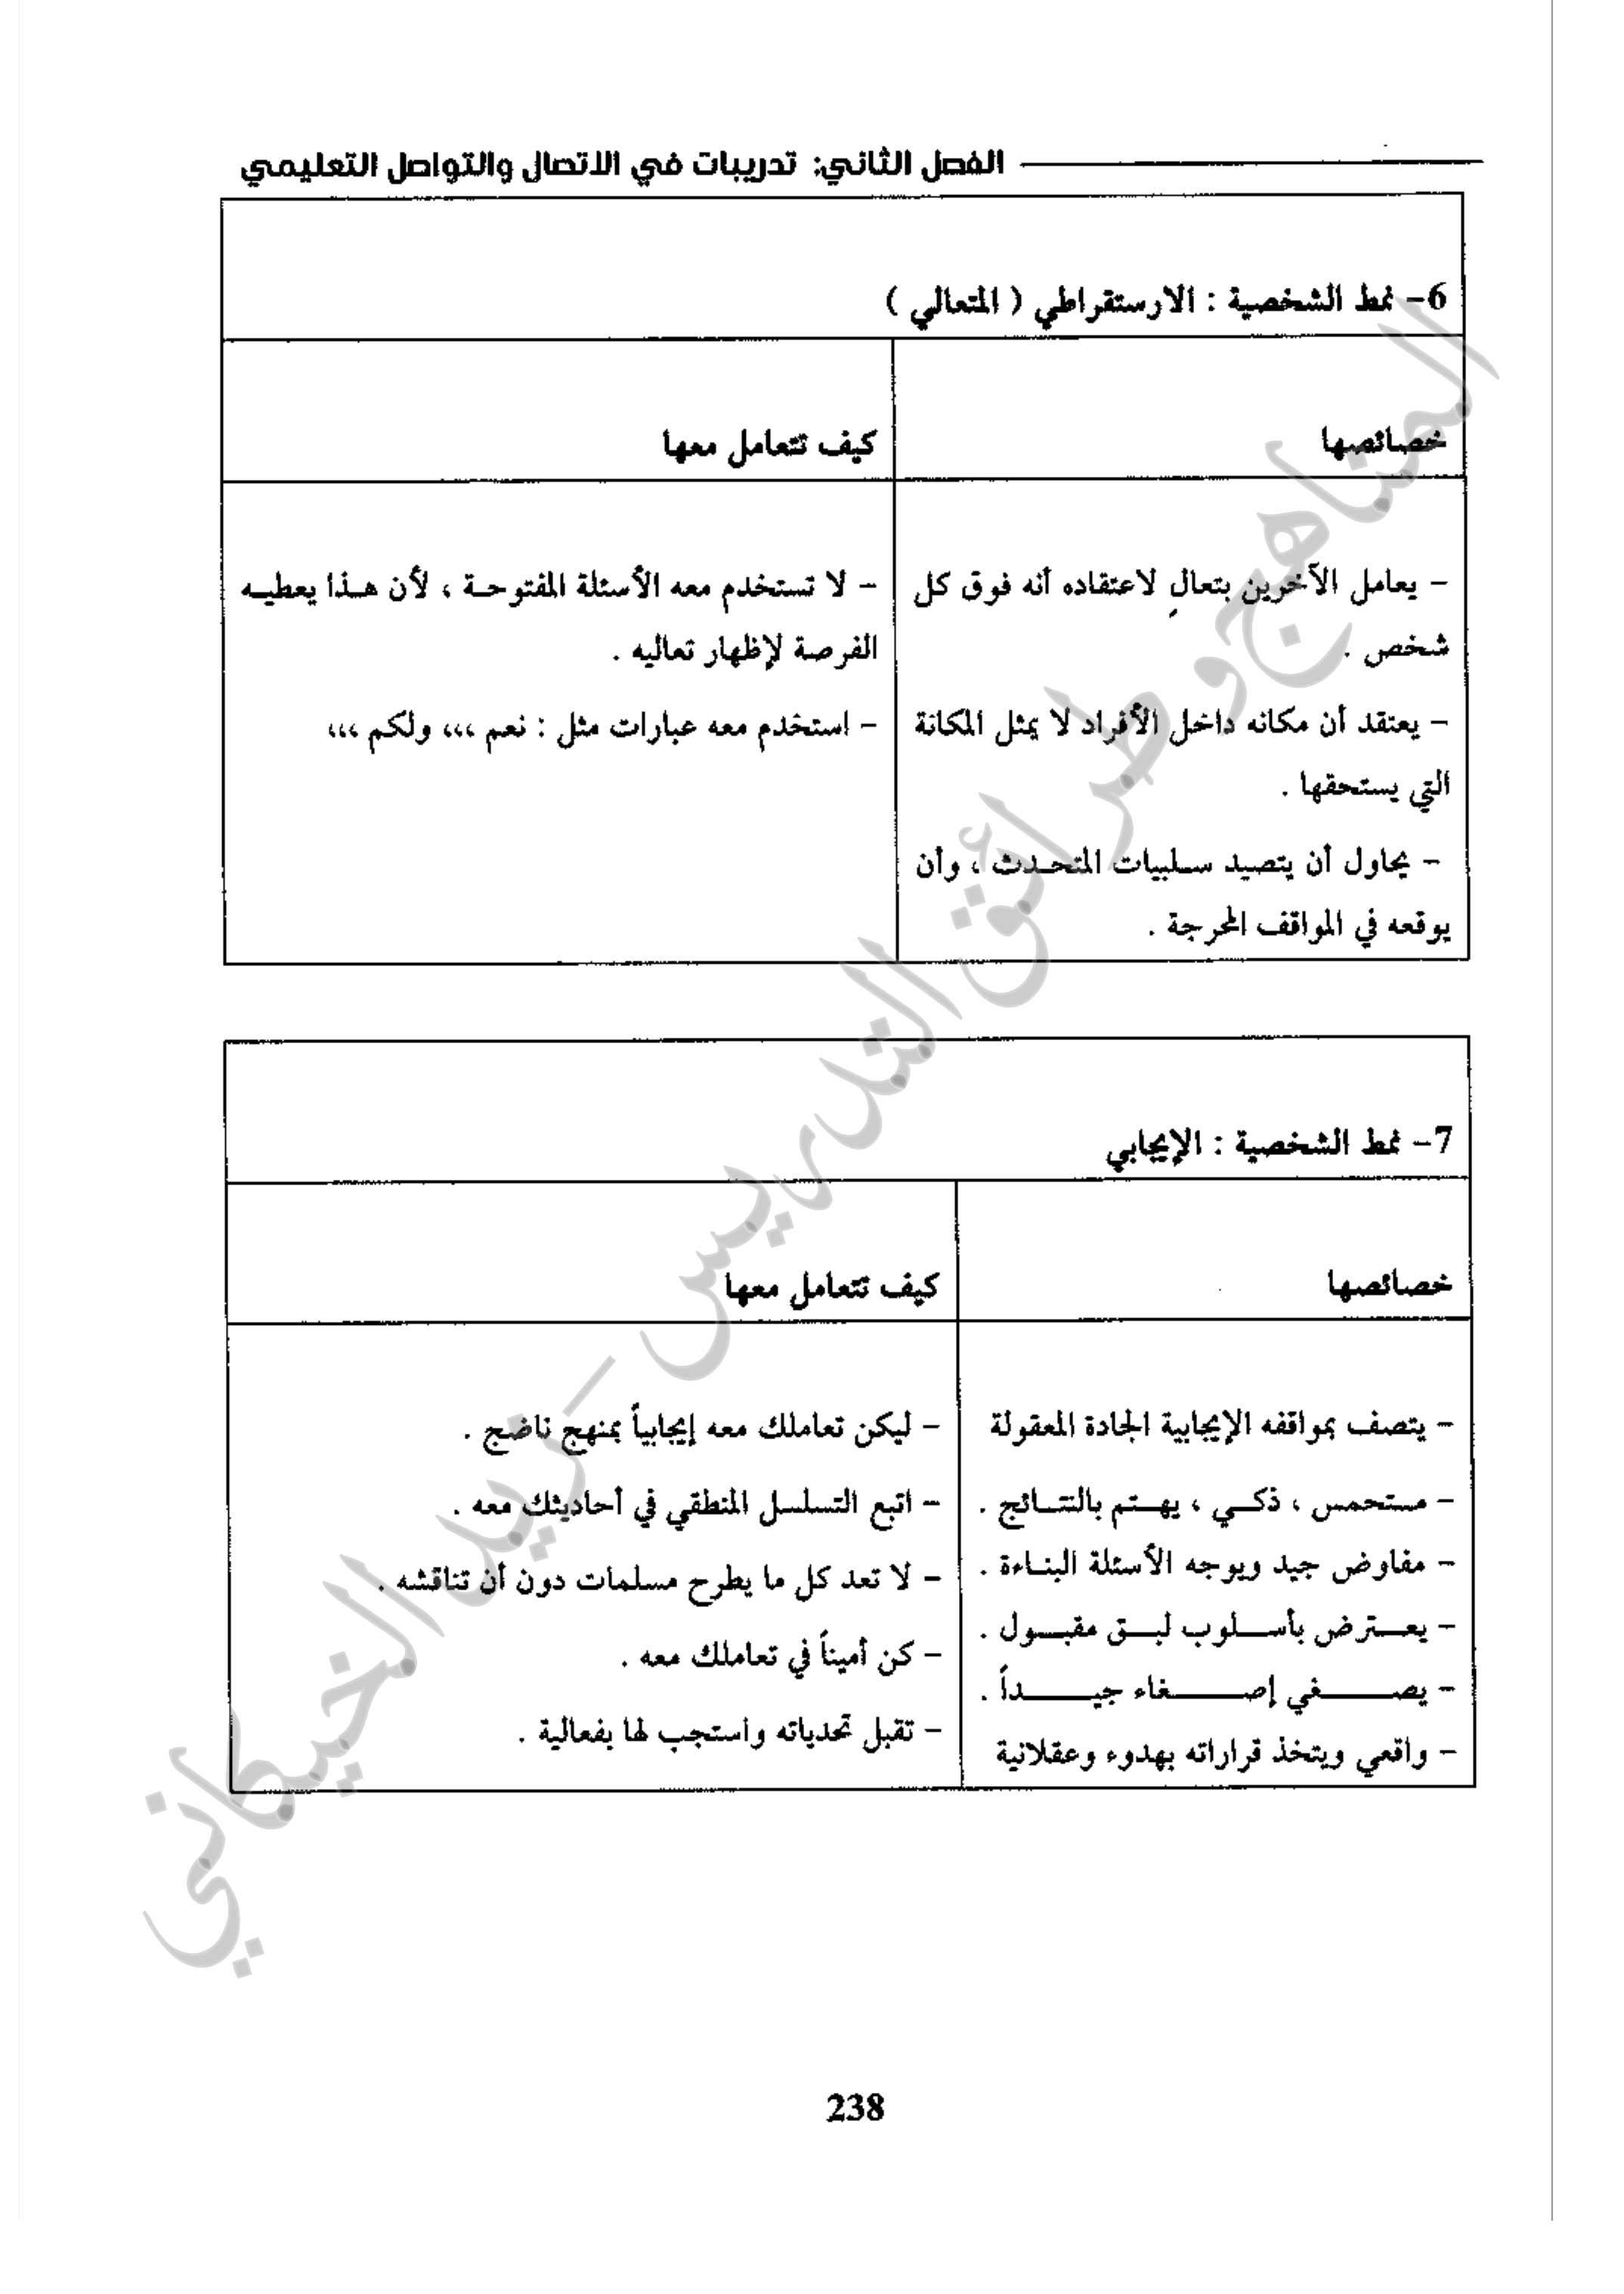 الفصل الثاني: تدريبات في الاتصال والتواصل التعليمي
6- نمط الشخصية : الارستقراطي ( المتعالي )
خصائصها
كيف تتعامل معها
- يعامل الآخرين بتعالٍ لاعتقاده أنه فوق كل
شخص .
- يعتقد أن مكانه داخل الأفراد لا يمثل المكانة
التي يستحقها .
- يحاول أن يتصيد سلبيات المتحدث ، وأن
يوقعه في المواقف المحرجة .
- لا تستخدم معه الأسئلة المفتوحة ، لأن هذا يعطيه
الفرصة لإظهار تعاليه .
- استخدم معه عبارات مثل : نعم ،،، ولكم ،،،
7- نمط الشخصية : الإيجابي
خصائصها
كيف تتعامل معها
- يتصف بمواقفه الإيجابية الجادة المعقولة
- متحمس ، ذكي ، يهتم بالنتائج .
- مفاوض جيد ويوجه الأسئلة البناءة .
- يعترض بأسلوب لبق مقبول .
- يصغي إصغاء جيداً .
- واقعي ويتخذ قراراته بهدوء وعقلانية
- ليكن تعاملك معه إيجابياً بمنهج ناضج .
- اتبع التسلسل المنطقي في أحاديثك معه .
- لا تعد كل ما يطرح مسلمات دون أن تناقشه .
- كن أميناً في تعاملك معه .
- تقبل تحدياته واستجب لها بفعالية .
المناهج وطرائق التدريس - زيد الخيكاني
238